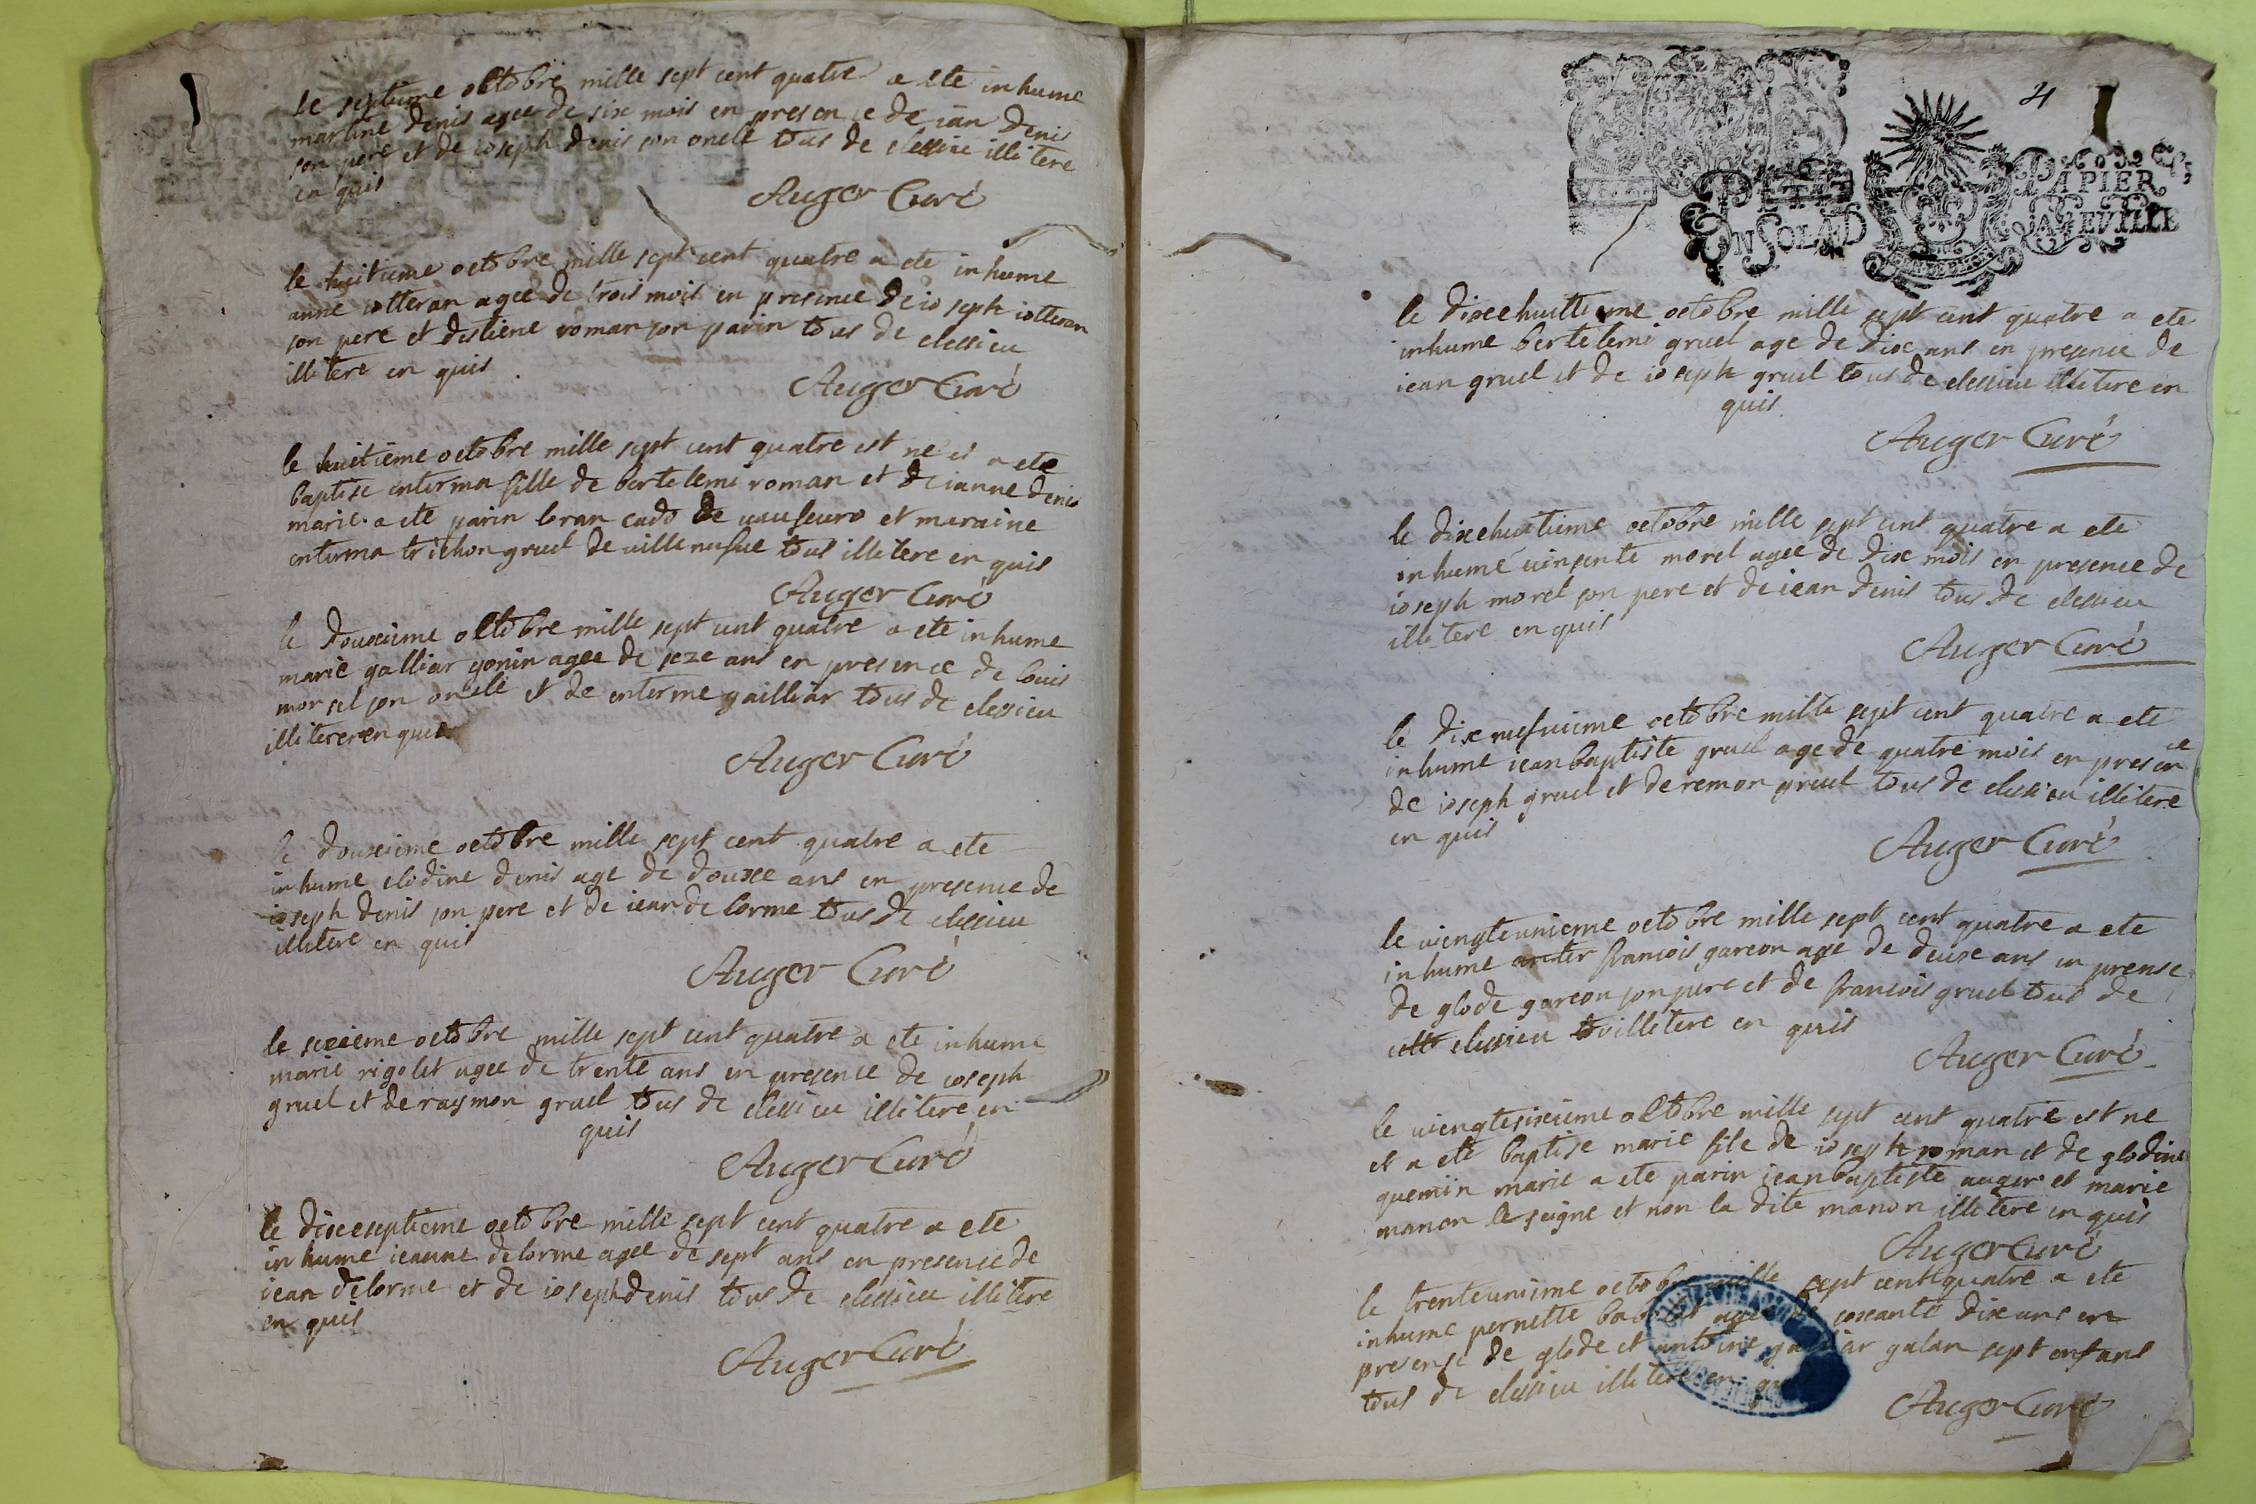 le septieme octobre mille sept cent quatre a ete inhume
martine denis agee de six mois en presence de ian denis
son pere et de ioseph denis son oncle tous de clessieu illitere
en quis
Auger Curé
le huitieme octobre mille sept cent quatre a ete inhume
anne iotteran agee de trois mois en presence de ioseph iotteran
son pere et destiene roman son parin tous de clessieu
illitere en quis
Auger Curé
le huitieme octobre mille sept cent quatre est ne et a ete
baptise enterma fille de bertelemi roman et de ianne denis
marie a ete parin loran de et maraine
enterma trichon gruel de villeneufue tous illitere en quis
Auger Curé
le douxieme octobre mille sept cent quatre a ete inhume
marie galliar gonin agee de seze ans en presence de louis
morsel son oncle et de enterme gailliar tous de clessieu
illitere en quis
Auger Curé
le douxieme octobre mille sept cent quatre a ete
inhume clodine denis age de douxe ans en presence de
ioseph denis son pere et de iean de lorme tous de clessieu
illitere en quis
Auger Curé
le sezieme octobre mille sept cent quatre a ete inhume
marie rigolet agee de trente ans en presence de ioseph
gruel et de raymon gruel tous de clessieu illitere en
quis
Auger Curé
le dixeseptieme octobre mille sept cent quatre a ete
inhume ieanne delorme agee de sept ans en presence de
iean delorme et de ioseph denis tous de clessieu illitere
en quis
Auger Curé
PAPIER
le dixehuittieme octobre mille sept cent quatre a ete
inhume bertelemi gruel age de dix ans en presence de
iean gruel et de ioseph gruel tous de clessieu illitere en
quis
Auger Curé
le dixehuitieme octobre mille sept cent quatre a ete
inhumé vinsente morel agee de dix mois en presence de
ioseph morel son pere et de iean denis tous de clessieu
illitere en quis
Auger Curé
le dix neufuieme octobre mille sept cent quatre a ete
inhume iean baptiste gruel age de quatre mois en presence
de ioseph gruel et de remon gruel tous de clessieu illitere
en quis
Auger Curé
le viengteunieme octobre mille sept cent quatre a ete
inhume francois garcon age de deuxe ans en prense
de glode garcon son pere et de francois gruel tous de
clessieu illitere en quis
Auger Curé
le viengtesixieme octobre mille sept cent quatre est ne
et a ete baptise marie file de ioseph roman et de glodine
quemin marie a ete parin iean baptiste auger et marie
manon le seigne et non la dite manon illitere en quis
Auger Curé
le trenteunieme octobre mille sept cent quatre a ete
inhume pernette agee de soxante dix ans en
presense de glode et antoine galliar galan sept enfans
tous de clessieu illitere en quis
Auger Curé